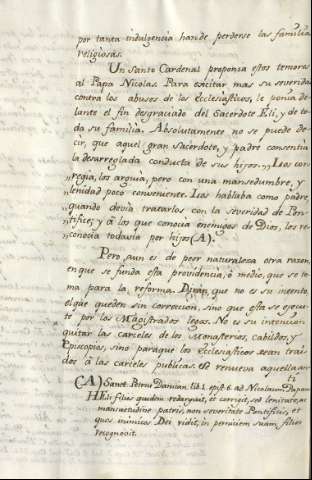 por tanta indulgencia han de perderse las familias
religiosas.
Un Santo Cardenal proponia estos temores
al Papa Nicolas. Para excitar mas su severidad
contra los abusos de los Ecclesiasticos, le ponia de-
lante el fin desgraciado del Sacerdote Eli, y de to-
da su familia. Absolutamente no se puede de-
cir, que aquel gran Sacerdote, y padre consentia
la desarreglada conducta de sus hijos. „Los cor-
„regia, los arguia, pero con una mansedumbre, y
„lenidad poco conveniente. Los hablaba como padre,
„quando devia tratarlos con la severidad de Pon-
„tifice; y á los que conocia enemigos de Dios, los re-
„conocia todavia por hijos (A).
Pero aun es de peor naturaleza otra razon,
en que se funda esta providencia, ó medio, que se to-
ma para la reforma. Diràn que no es su intento,
el que queden sin correccion, sino que esta se execu-
te por los Magistrados legos. No es su intencion
quitar las carceles de los Monasterios, cabildos, y
Episcopios, sino paraque los Ecclesiasticos sean trai-
dos à las carceles publicas. Se renueva aquella
(A) Sanct. Petrus Damian. lib. 1. epist. 6. ad Nicolaum Papam
Heli filios quidem redarguit, et corrigit, sed lenitate, ac
mansuetudine patris, non severitate Pontificis, et
quos inimicos Dei vidit, in perniciem suam filios
recognovit.